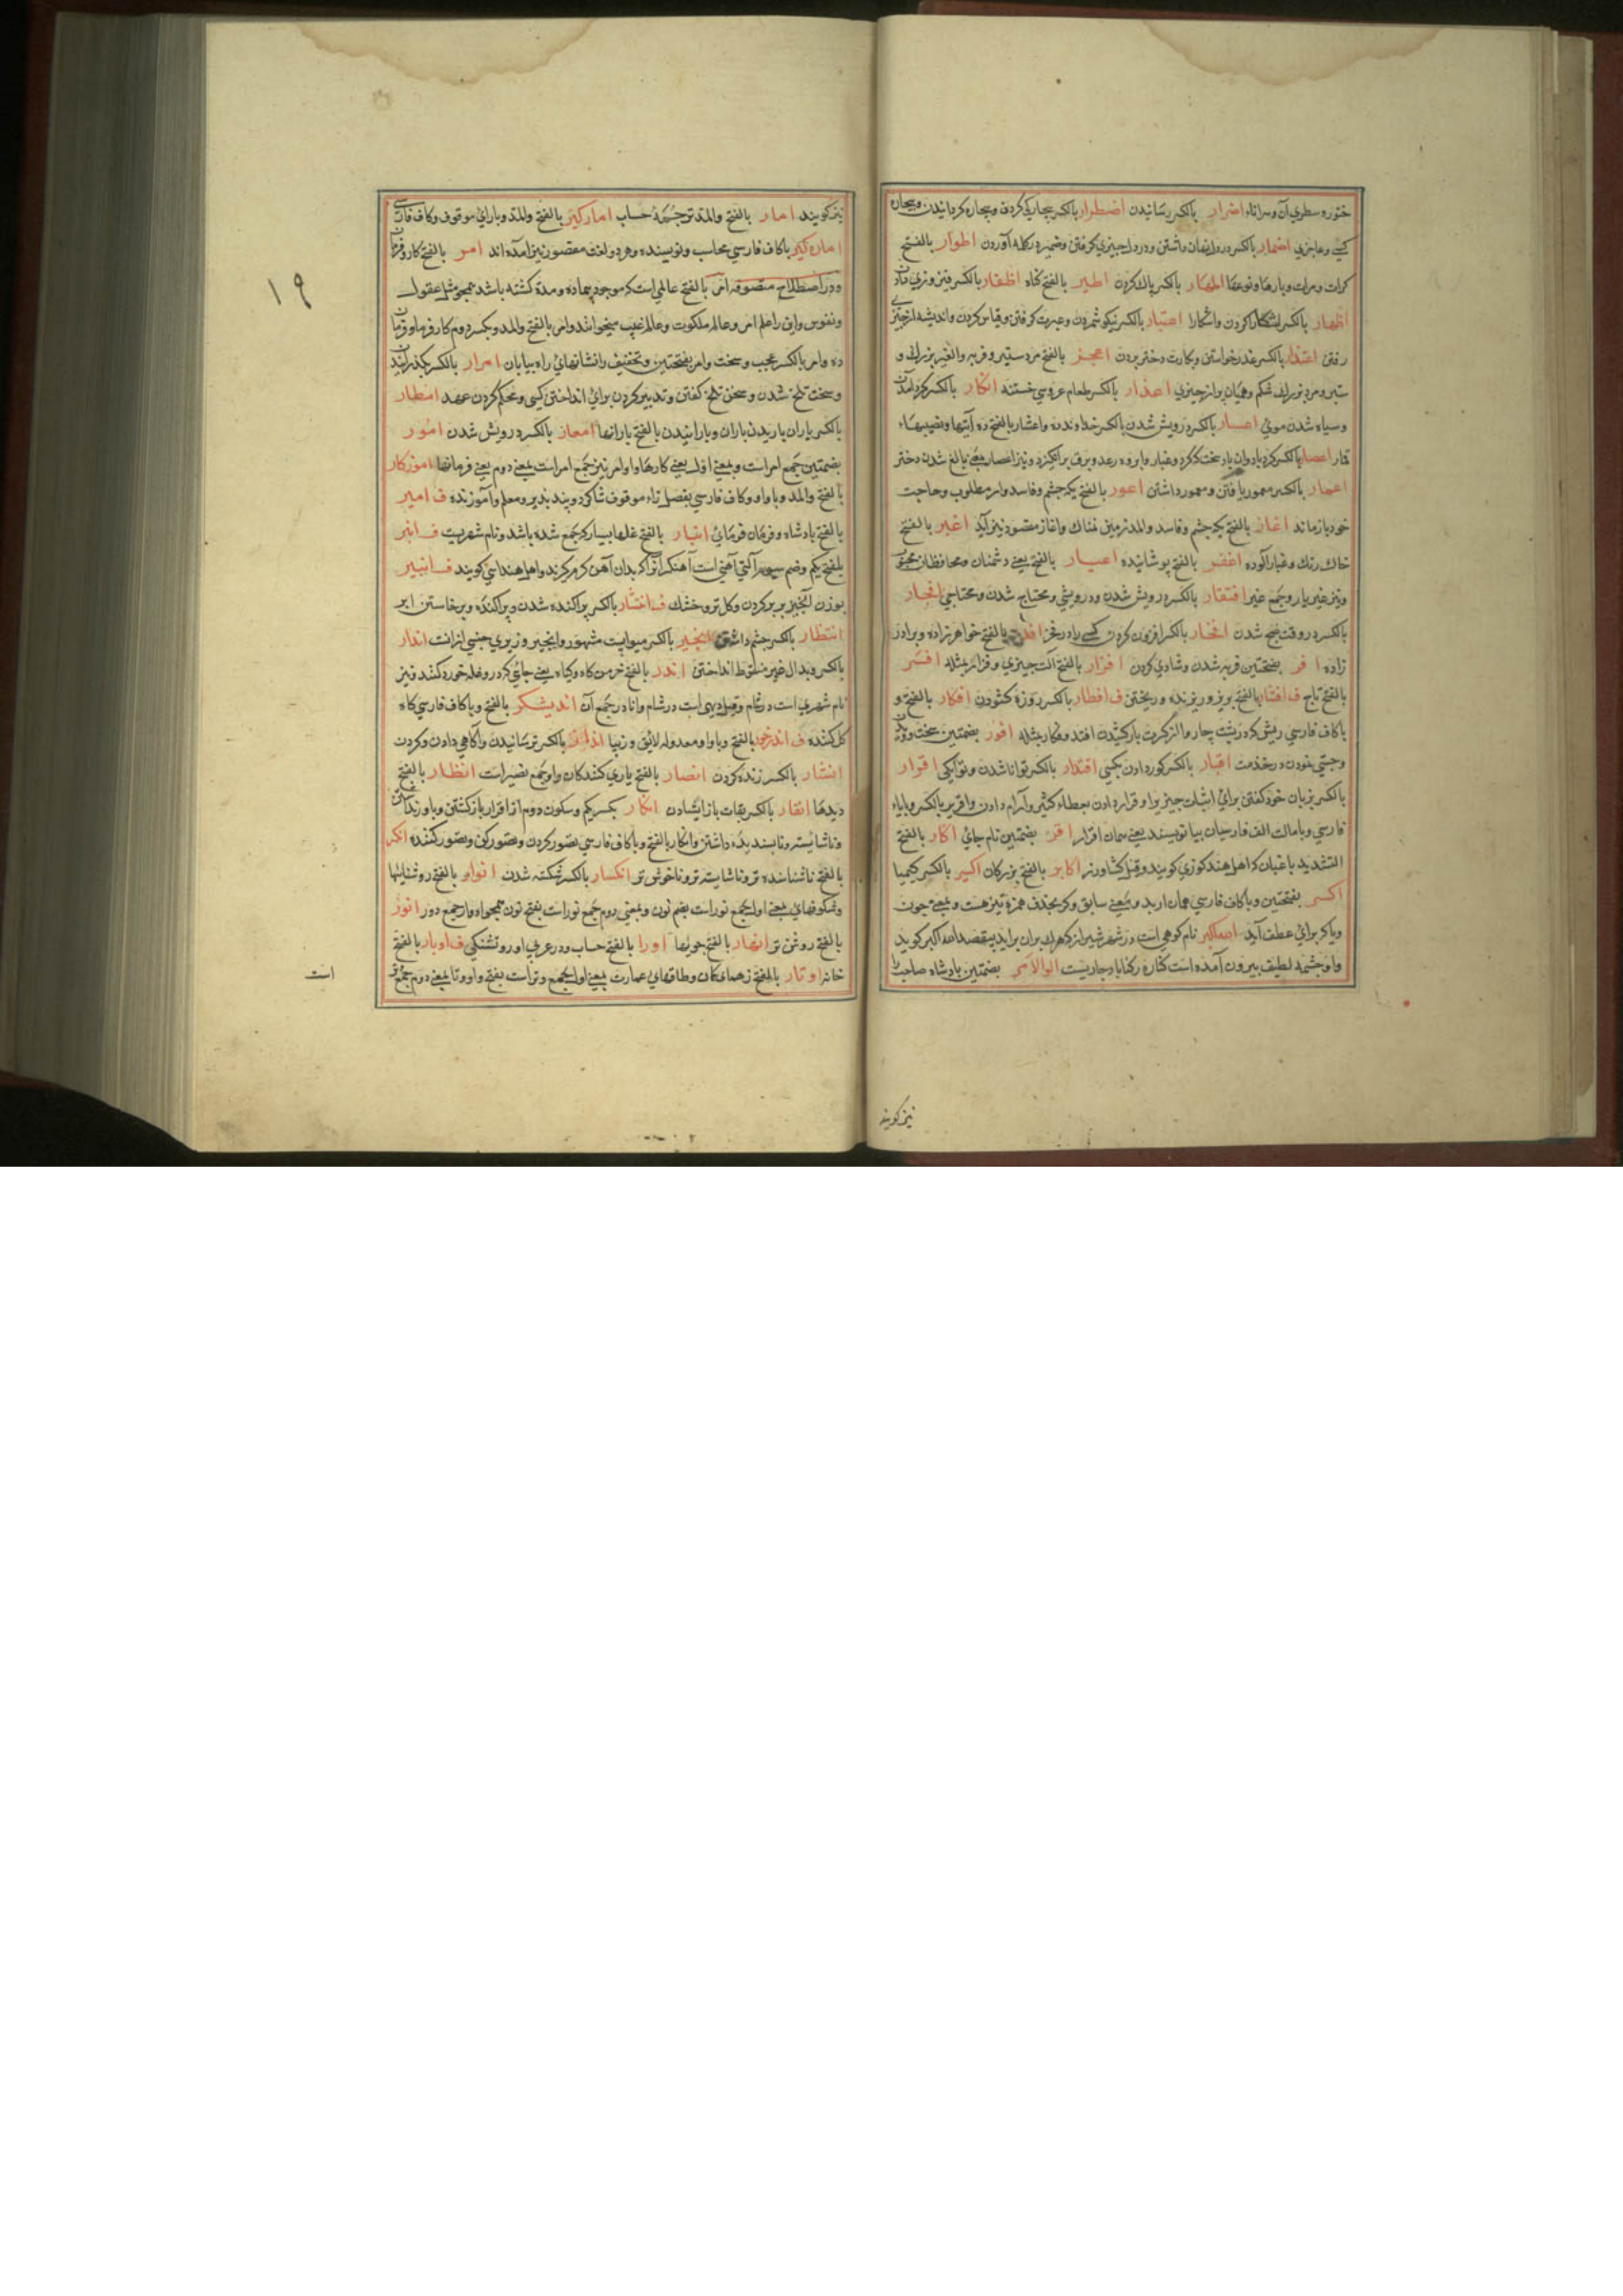 خنوره سطری آن و سراناء اضرار بالکسر رسانیدن اضطرار بالکسر بیچارکی کردن و بیچاره کردانیدن و بیچاره
کسی و عاجزی اضمار بالکسر در دل نهان داشتن و در دل چیزی کرفتن و ضمیر در کلمه آوردن اطوار بالفتح
کرات و مرات و بارها و نوعها اطهار بالکسر پاک کردن اطیر بالفتح کناه اظفار بالکسر فیروزی دادن
اظهار بالکسر آشکارا کردن و آشکارا اعتبار بالکسر نیکو شمردن و عبرت کرفتن و قیاس کردن و اندیشه از چیزی
رفتن اعتذار بالکسر عذر خواستن و بکارت دختر بردن اعجر بالفتح مرد ستبر و فربه و الغیه بزرک و
ستبر و مرد بزرک شکم و همیان پر از چیزی اعذار بالکسر طعام عروسی ختنه انکار بالکسر کرد آمدن
و سیاه شدن موی اعسار بالکسر درویش شدن بالکسر خداوند ده و اعشار بالفتح ده آیتها و نصیبهاء
قمار اعصار بالکسر کردباد و آن باد سخت که کرد و غبار و ابر و رعد و برق برانکیزد و نیز اعصار بمعنی بالغ شدن دختر
اعمار بالکسر معمور یافتن و معمور داشتن اعور بالفتح یک چشم و فاسد و امر مطلوب و حاجت
خود بازماند اغار بالفتح یک چشم و فاسد و المد زمین نمناک و اغاز مقصور نیز آید اغبر بالفتح
خاک رنک و غبار آلوده اغفر بالفتح پوشانیده اغیار بالفتح یعنی دشمنان و محافظان محبوب
و نیز غیر یار و جمع غیر افتقار بالکسر درویش شدن و درویشی و محتاج شدن و محتاجی افجار
بالکسر در وقت صبح شدن افخار بالکسر افزون کردن کسی را در فخر بالفتح خواهرزاده و برادر
زاده افر بفتحتین فربه شدن و شادی کردن افزار بالفتح آلت چیزی و فزار مثله افسر
بالفتح تاج ف افشار بالفتح بریز و ریزنده و ریختن ف افطار بالکسر روزه کشودن افکار بالفتح و
باکاف فارسی ریش که در پشت چاروا از کثرت بار کشیدن افتد و فکار مثله افور بضمتین سخت دویدن
و چستی نمودن در خدمت اقبار بالکسر کور دادن بکسی اقتدار بالکسر توانا شدن و توانکی اقرار
بالکسر بزبان خود کفتن برای اثبات چیزی و قرار دادن بعطاء کثیر و آرام دادن و اقریر بالکسر و بایاء
فارسی و بامالت الف فارسیان بیا نویسند یعنی همان اقرار اقر بضمتین نام جای اکار بالفتح
التشدید باغبان که اهل هند کوزی کویند و قیل کشاورز اکابر بالفتح بزرکان اکسیر بالکسر کیمیا
اکر بفتحتین و باکاف فارسی همان ار بدو معنی سابق و کر بحذف همزه نیز هست و بمعنی چون
و یا که برای عطف آید الله اکبر نام کوهی است در شهر شیراز که هرکه بران براید بیقصد الله اکبر کوید
و او چشمه لطیف بیرون آمده است کناره رکناباد جاریست اولوالامر بضمتین بادشاه صاحب را
نیز کویند
نیز کویند امار بالفتح و المد ترجمه حساب امارکیر بالفتح و المد و باراء موقوف و کاف فارسی
اماره کیر باکاف فارسی محاسب و نویسنده و هر دو لغت مقصور نیز آمده اند امر بالفتح کار و فرمان
و در اصطلاح متصوفه امر بالفتح عالمی است که موجود بیماده و مدة کشته باشد همچو مثل عقول
و نفوس و این را عالم امر و عالم ملکوت و عالم غیب میخوانند و امر بالفتح و المد و بکسر دوم کارفرما و فرمان
ده و امر بالکسر عجب و سخت و امر بفتحتین و تخفیف را نشانهای راه بیابان امرار بالکسر بکذرانیدن
و سخت تلخ شدن و سخن تلخ کفتن و تدبیر کردن برای انداختن کسی و محکم کردن عهد امطار
بالکسر باران باریدن باران و بارانیدن بالفتح بارانها امعار بالکسر درویش شدن امور
بضمتین جمع امر است و بمعنی اول یعنی کارها و اوامر نیز جمع امر است بمعنی دوم یعنی فرمانها آموزکار
بالفتح و المد و باواو و کاف فارسی بفصل زاء موقوف شاکرد و پند پذیر و معلم و آموزنده ف امیر
بالفتح پادشاه و فرمان فرمای انبار بالفتح غلها بسیار که جمع شده باشد و نام شهریست ف انبر
بفتح یکم و ضم سیوم آلتی آهنی است آهنکرانرا که بدان آهن کرم کیرند و اهل هند سنسی کویند ف انبیر
بوزن انجیر پر کردن و کل تر و خشک ف انتشار بالکسر پراکنده شدن و پراکنده و برخاستن ایر
انتظار بالکسر چشم داشتن انجیر بالکسر میوه ایست مشهور و انجیر وزیری جنسی ازانست اندار
بالکسر و بدال غیر منقوط انداختن اندر بالفتح خرمن کاه و کیاه یعنی جای که درو غله خورد کنند و نیز
نام شهری است در شام و قیل دیهی است در شام و انادر جمع آن اندیشکر بالفتح و باکاف فارسی کاه
کل کننده ف اندرخور بالفتح و باواو معدوله لایق و زیبا انذار بالکسر ترسانیدن و آکاهی دادن و کردن
انشار بالکسر زنده کردن انصار بالفتح یاری کنندکان و او جمع نصیر است انظار بالفتح
دیدها انقار بالکسر بقات باز ایستادن انکار بکسر یکم و سکون دوم از اقرار بازکشتن و باور نداشتن
و ناشایسته و ناپسندیده داشتن و انکار بالفتح و باکاف فارسی تصور کردن و تصور کن و تصور کننده انکر
بالفتح ناشناسنده تر و ناشایسته تر و ناخوش تر انکسار بالکسر شکسته شدن انوار بالفتح روشنایها
و شکوفهای بمعنی اول جمع نور است بضم نون و بمعنی دوم جمع نور است بفتح نون همچو ادوار جمع دور انور
بالفتح روشن تر انهار بالفتح جویها اورا بالفتح حساب و در عربی اوره تشنکی ف اوبار بالفتح
خانه اوتار بالفتح زهمای کمان و طاقهای عمارت بمعنی اول جمع وتر است بفتح واو و تا بمعنی دوم جمع وتر
است
۱۹